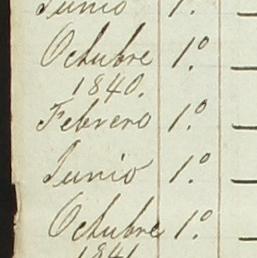 Junio 1.º
Octubre 1.º
1840.
Febrero 1.º
Junio 1.º
Octubre 1.º
1841